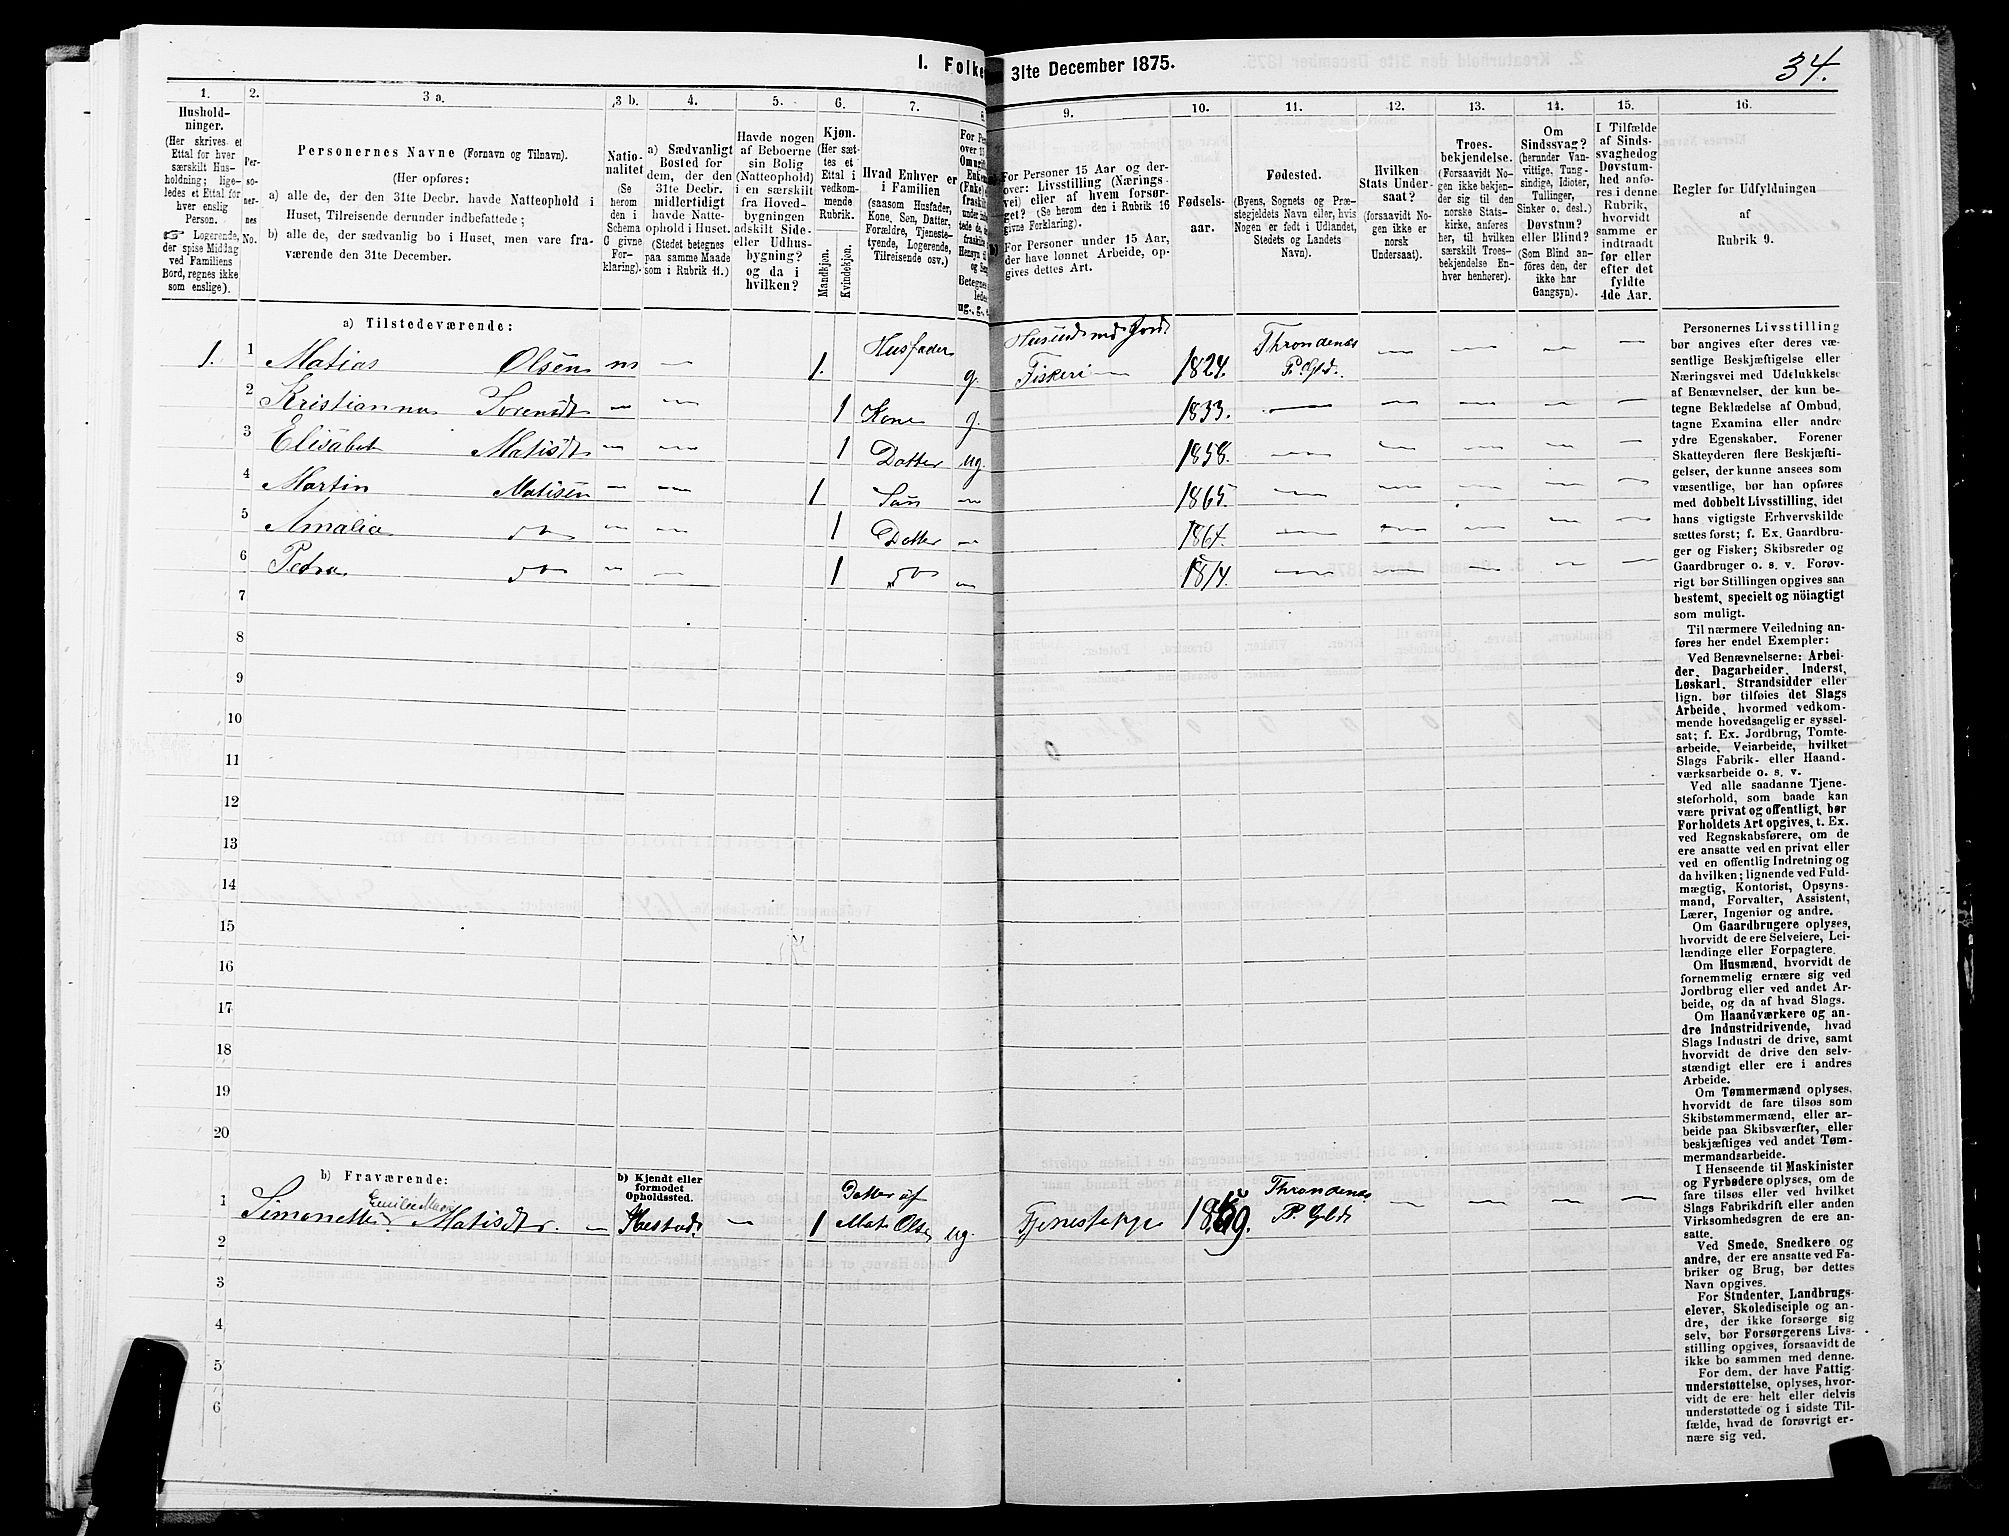 1. Folke 31te December 1875.
34.
1. 2. 3 a. 3 b. 4. 5. 6. 7. 8. 9. 10. 11. 12. 13. 14. 15. 16.
Hushold-
ninger.
(Her skrives et
Ettal for hver
særskilt Hus-
holdning; lige-
ledes et Ettal for
hver enslig
Person.
☞ Logerende,
der spise Middag
ved Familiens
Bord, regnes ikke
som enslige).
Per-
so-
ner-
nes
No.
Personernes Navne (Fornavn og Tilnavn).
(Her opføres:
a) alle de, der den 31te Decbr. havde Natteophold i
Huset, Tilreisende derunder indbefattede;
b) alle de, der sædvanlig bo i Huset, men vare fra-
værende den 31te December.
Natio-
nalitet
(Se
herom
den i
Schema
6 givne
For-
klaring).
a) Sædvanligt
Bosted for
dem, der den
31te Decbr.
midlertidigt
havde Natte-
ophold i Huset.
(Stedet betegnes
paa samme Maade
som i Rubrik 11.)
Havde nogen
af Beboerne
sin Bolig
(Natteophold)
i en særskilt
fra Hoved-
bygningen
adskilt Side-
eller Udhus-
bygning?
og da i
hvilken?
Kjøn.
(Her sæt-
tes et
Ettal i
vedkom-
mende
Rubrik.
Mandkjøn.
Kvindekjøn.
Hvad Enhver er
i Familien
(saasom Husfader,
Kone, Søn, Datter,
Forældre, Tjeneste-
tyende, Logerende,
Tilreisende osv.)
For Personer 15 Aar og der-
over: Livsstilling (Nærings-
vei) eller af hvem forsør-
get? (Se herom den i Rubrik 16
givne Forklaring).
For Personer under 15 Aar,
der have lønnet Arbeide, op-
gives dettes Art.
Fødsels-
aar.
Fødested.
(Byens, Sognets og Præ-
stegjeldets Navn eller, hvis
Nogen er født i Udlandet,
Stedets og Landets
Navn).
Hvilken
Stats Under-
saat?
(forsaavidt No-
gen ikke er
norsk
Undersaat).
Troes-
bekjendelse.
(Forsaavidt No-
gen ikke bekjen-
der sig til den
norske Stats-
kirke, anføres
her, til hvilken
særskilt Troes-
bekjendelse En-
hver henhører).
Om
Sindssvag?
(herunder Van-
vittige, Tung-
sindige, Idioter,
Tullinger,
Sinker o. desl.)
Døvstum?
eller Blind?
(Som Blind an-
føres den, der
ikke har
Gangsyn).
I Tilfælde
af Sinds-
svaghed og
Døvstum-
hed anfø-
res i denne
Rubrik,
hvorvidt
samme er
indtraadt
før eller
efter det
fyldte
4de Aar.
Regler for Udfyldningen
af
Rubrik 9.
a) Tilstedeværende:
1. 1 Matias Olsen n — 1. Husfader g. Husmd med Jord Fiskeri 1824. Throndenæs P. Gld. — — — —
2 Kristianna Sorensdt — — 1 Kone g. 1833. — — — — —
3 Elisabet Matisdt — — 1 Datter ug. 1858. — — — — —
4 Martin Matisen — — 1 Søn — 1865. — — — — —
5 Amalia do — — 1 Datter — — — — — —
6 Petra do — — 1 do — — — — — —
7
8
9
10
11
12
13
14
15
16
17
18
19
20
b) Fraværende:
b) Kjendt eller
formodet
Opholdssted.
1 Simonette Emilie Marie Matisdtr. — — 1 Datter af Mat Olsen ug. Tjenestepige Throndenæs P. Gld — — — —
2
3
4
5
6
Personernes Livsstilling
bør angives efter deres væ-
sentlige Beskjæftigelse eller
Næringsvei med Udelukkelse
af Benævnelser, der kun be-
tegne Beklædelse af Ombud,
tagne Examina eller andre
ydre Egenskaber. Forener
Skatteyderen flere Beskjæfti-
gelser, der kunne ansees som
væsentlige, bør han opføres
med dobbelt Livsstilling, idet
hans vigtigste Erhvervskilde
sættes først; f. Ex. Gaardbru-
ger og Fisker; Skibsreder og
Gaardbruger o. s. v. Forøv-
rigt bør Stillingen opgives saa
bestemt, specielt og nöiagtigt
som muligt.
Til nærmere Veiledning an-
føres her endel Exempler:
Ved Benævnelserne: Arbei-
der, Dagarbeider, Inderst,
Løskarl, Strandsidder eller
lign. bør tilføies det Slags
Arbeide, hvormed vedkom-
mende hovedsagelig er syssel-
sat; f. Ex. Jordbrug, Tomte-
arbeide, Veiarbeide, hvilket
Slags Fabrik- eller Haand-
værksarbeide o. s. v.
Ved alle saadanne Tjene-
steforhold, som baade kan
være privat og offentligt, bør
Forholdets Art opgives, t. Ex.
ved Regnskabsførere, om de
ere ansatte ved en privat eller
ved en offentlig Indretning og
da hvilken; lignende ved Fuld-
mægtig, Kontorist, Opsyns-
mand, Forvalter, Assistent,
Lærer, Ingeniør og andre.
Om Gaardbrugere oplyses,
hvorvidt de ere Selveiere, Lei-
lændinge eller Forpagtere.
Om Husmænd, hvorvidt de
fornemmelig ernære sig ved
Jordbrug eller ved andet Ar-
beide, og da af hvad Slags.
Om Haandværkere og an-
dre Industridrivende, hvad
Slags Industri de drive, samt
hvorvidt de drive den selv-
stændigt eller ere i andres
Arbeide.
Om Tømmermænd oplyses,
hvorvidt de fare tilsøs som
Skibstømmermænd, eller ar-
beide paa Skibsværfter, eller
beskjæftiges ved andet Tøm-
mermandsarbeide.
I Henseende til Maskinister
og Fyrbødere oplyses, om de
fare tilsøs eller ved hvilket
Slags Fabrikdrift eller anden
Virksomhedsgren de ere an-
satte.
Ved Smede, Snedkere og
andre, der ere ansatte ved Fa-
briker og Brug, bør dettes
Navn opgives.
For Studenter, Landbrugs-
elever, Skoledisciple og an-
dre, der ikke forsørge sig
selv, bør Forsørgerens Livs-
stilling opgives, forsaavidt de
ikke bo sammen med denne.
For dem, der have Fattig-
understøttelse, oplyses, hvor-
vidt de ere helt eller delvis
understøttede og i sidste Til-
fælde, hvad de forøvrigt er-
nære sig ved.